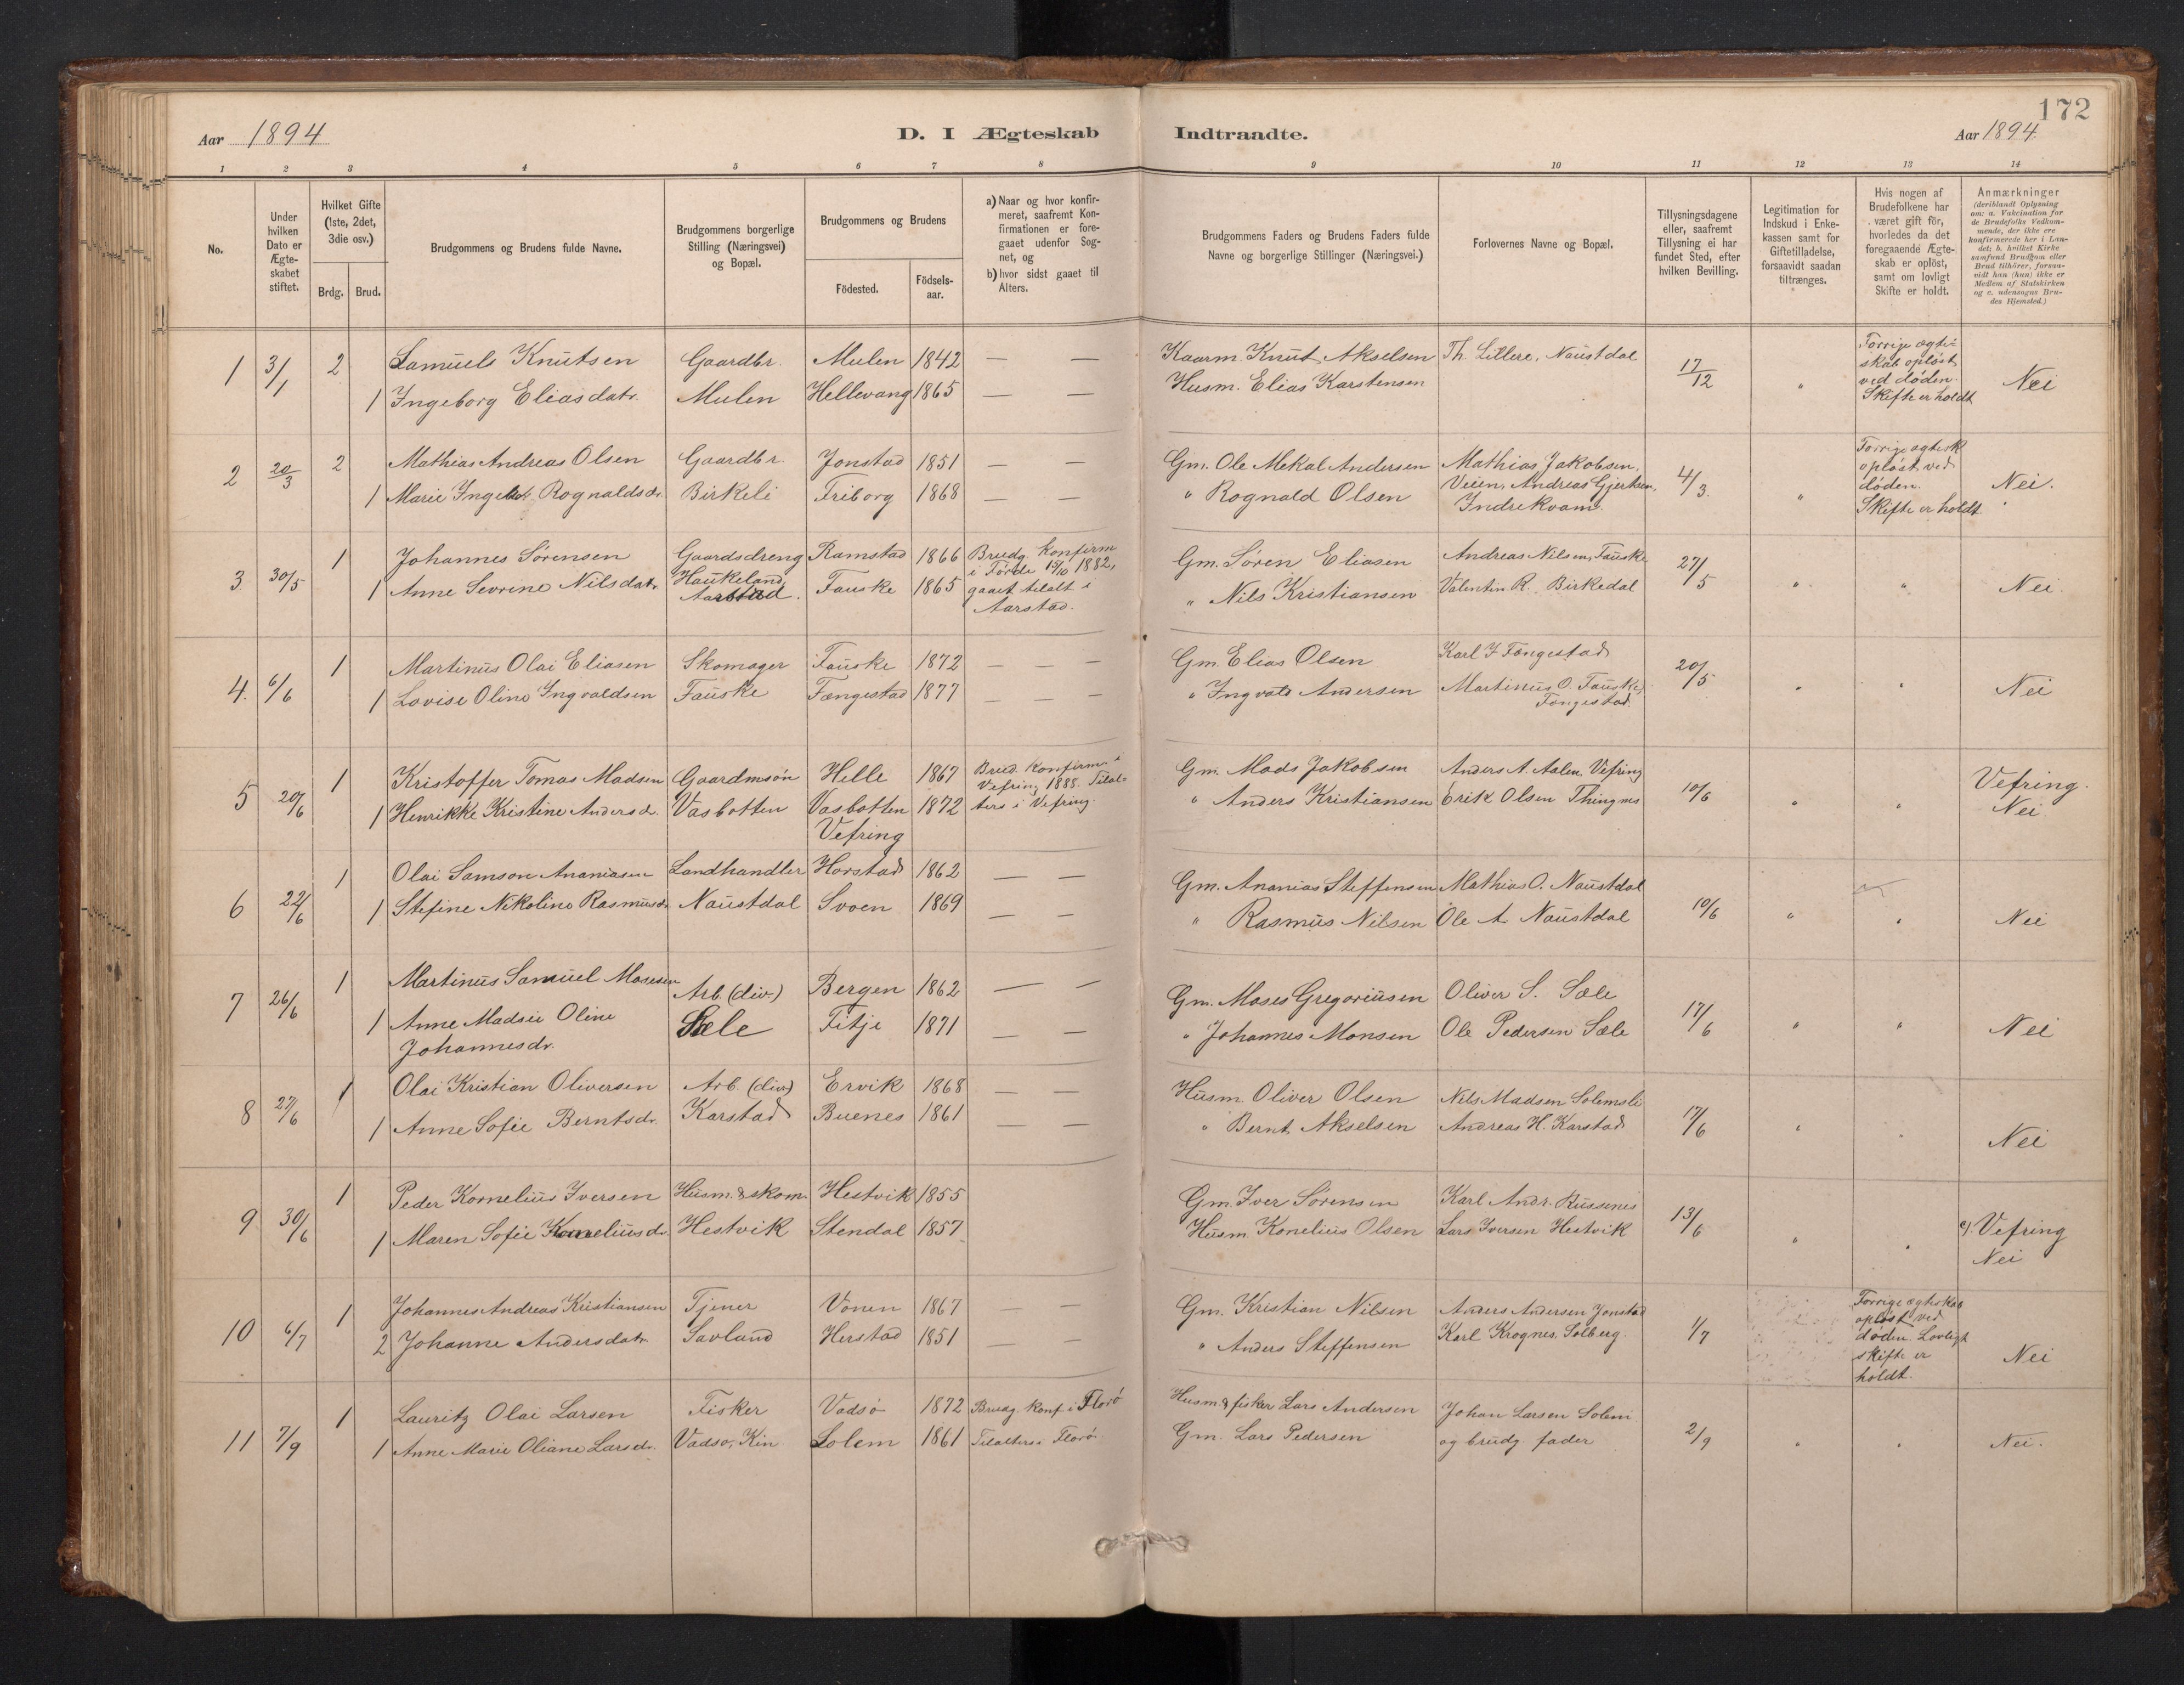 172
Aar 1894
D. I Ægteskab Indtraadte.
Aar 1894
1 2 3 4 5 6 7 8 9 10 11 12 13 14
No.
Under hvilken Dato er Ægteskabet stiftet.
Hvilket Gifte (1ste, 2det, 3die osv.)
Brdg. Brud.
Brudgommens og Brudens fulde Navne.
Brudgommens borgerlige Stilling (Næringsvei) og Bopæl.
Brudgommens og Brudens
Födested. Födselsaar.
a) Naar og hvor konfirmeret, saafremt Konfirmationen er foregaaet udenfor Sognet, og
b) hvor sidst gaaet til Alters.
Brudgommens Faders og Brudens Faders fulde Navne og borgerlige Stillinger (Næringsvei.)
Forlovernes Navne og Bopæl.
Tillysningsdagene eller, saafremt Tillysning ei har fundet Sted, efter hvilken Bevilling.
Legitimation for Indskud i Enkekassen samt for Giftetilladelse, forsaavidt saadan tiltrænges.
Hvis nogen af Brudefolkene har været gift för, hvorledes da det foregaaende Ægteskab er oplöst, samt om lovligt Skifte er holdt.
Anmærkninger
(deriblandt Oplysning om: a. Vakcination for de Brudefolks Vedkommende, der ikke ere konfirmerede her i Landet; b. hvilket Kirkesamfund Brudgom eller Brud tilhörer, forsaavidt han (hun) ikke er Medlem af Statskirken og c. udensogns Brudes Hjemsted.)
1 3/1 2 Samuels Knutsen Gaardbr. Mulen 1842 — — Kaarm. Knut Akselsen Th. Lillere, Naustdal 17/12 " Forrige ægteskab opløst ved døden. Skifte er holdt Nei
1 Ingeborg Eliasdatr. Mulen Hellevang 1865 — — Husm. Elias Karstensen
2 20/3 2 Mathias Andreas Olsen Gaardbr. Jonstad 1851 — — Gm. Ole Mekal Andersen Mathias Jakobsen, 4/3. " Forrige ægtesk opløst ved døden. Skifte er holdt Nei.
1 Marie Ingebor Rognaldsdr. Birkeli Friborg 1868 — — " Rognald Olsen Veien, Andreas Gjertsen, Indrekvam.
3 30/5 1 Johannes Sørensen Gaardsdreng Ramstad 1866 Brudg. Konfirm i Førde 15/10 1882, Gm. Søren Eliasen Andreas Nilsen, Fauske 27/5 " " Nei.
1 Anne Sevrine Nilsdatr. Haukeland, Aarstad. Fauske 1865 gaaet tilalt i Aarstad. " Nils Kristiansen Valentin R. Birkedal
4. 6/6 1 Martinus Olai Eliasen Skomager Fauske 1872 — — — Gm. Elias Olsen Karl I Fængestad 20/5 " " Nei
1 Lovise Oline Ingvaldsen Fauske Fængestad 1877 — — — " Ingvald Andersen Martinus O. Fauske, Fængestad.
5 20/6 1 Kristoffer Tomas Madsen Gaardmsøn Helle 1867 Brud. Konfirm. i Vefring 1888. Tilal- Gm. Mads Jakobsen Anders A. Aalen, Vefring 10/6 " " Vefring.
1 Henrikke Kristine Andersdr. Vasbotten Vasbotten Vefring 1872 ters i Vefring. " Anders Kristiansen Erik Olsen Thingnes Nei
6 22/6 1 Olai Samson Ananiasen Landhandler Horstad 1862 — — Gm. Ananias Steffensen Mathias O. Naustdal 10/6 " " Nei
1 Stefine Nikoline Rasmusdr. Naustdal Svoen 1869 — — " Rasmus Nilsen Ole A. Naustdal
7 26/6 1 Martinus Samuel Mosesen Arb. (div.) Bergen 1862 — — Gm. Moses Gregoriusen Oliver S. Sæle 17/6 " " Nei
1 Anne Madsie Oline Johannesdr. Sæle Fitje 1871 — — " Johannes Monsen Ole Pedersen Sæle
8 27/6 1 Olai Kristian Oliversen Arb. (div.) Ervik 1868 — — Husm. Oliver Olsen Nils Madsen Solemsli 17/6 " " Nei
1 Anne Sofie Berntsdr. Karstad Buenes 1861 — — " Bernt Akselsen Andreas H. Karstad
9 30/6 1 Peder Kornelius Iversen Husm. & skom. Hestvik 1855 Gm. Iver Sørensen Karl Andr. Russenes 13/6 " " c). Vefring
1 Maren Sofie Korneliusdr. Hestvik Stendal 1857 Husm. Konelius Olsen Lars Iversen Hestvik Nei
10 6/7 1 Johannes Andreas Kristiansen Tjener Vonen 1867 — — Gm. Kristian Nilsen Anders Andersen Jonstad 1/7 Forrige ægteskab opløst ved døden. Lovligt skifte er holdt. Nei
2 Johanne Andersdatr. Savland Herstad 1851 — — " Anders Steffensen Karl Krognes, Solberg.
11 7/9 1 Lauritz Olai Larsen Fisker Vadsø 1872 Brudg. Konf. i Florø Husm. & fisker Lars Andersen Johan Larsen Solem 2/9 " " Nei.
1 Anne Marie Oliane Larsdr. Vadsø, Kin. Solem 1861 Tilalters i Florø. Gm. Lars Pedersen og brudg. fader